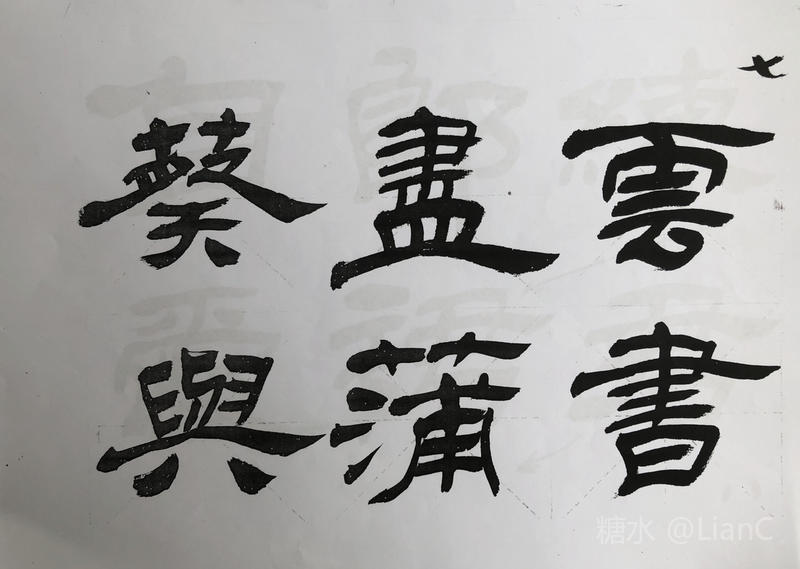 七
雲書
盡蒲
葵與
糖水 @LianC